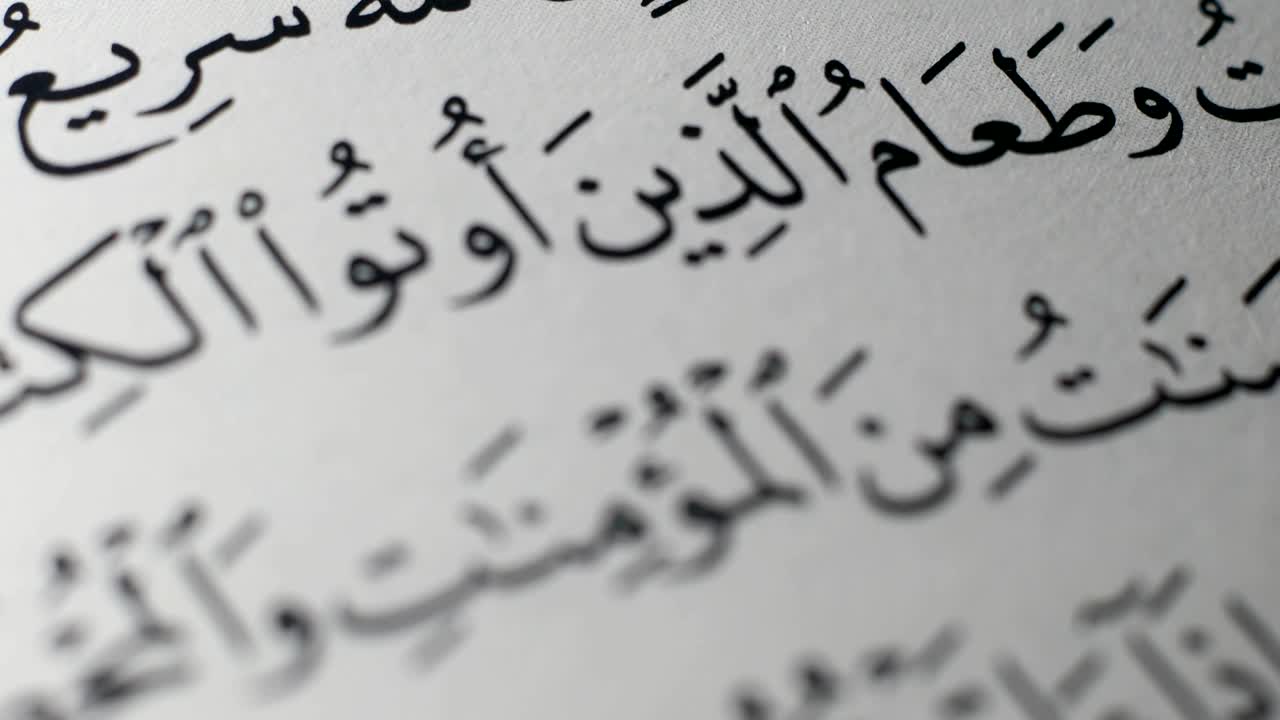 ٱللَّهَ سَرِيعُ
تُ وَطَعَامُ ٱلَّذِينَ أُوتُوا۟ ٱلْكِتَـ
مَنَـٰتُ مِنَ ٱلْمُؤْمِنَـٰتِ وَٱلْمُحْـ